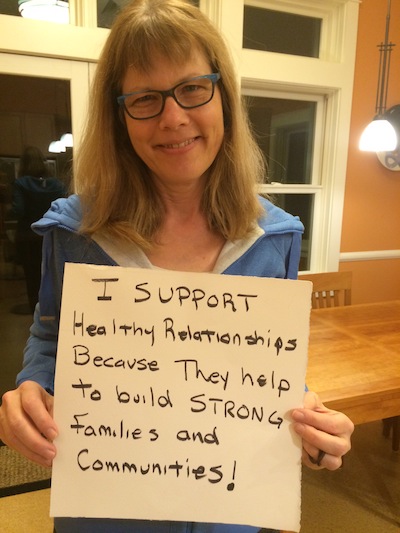 I SUPPORT
Healthy Relationships
Because They help
to build STRONG
families and
Communities!